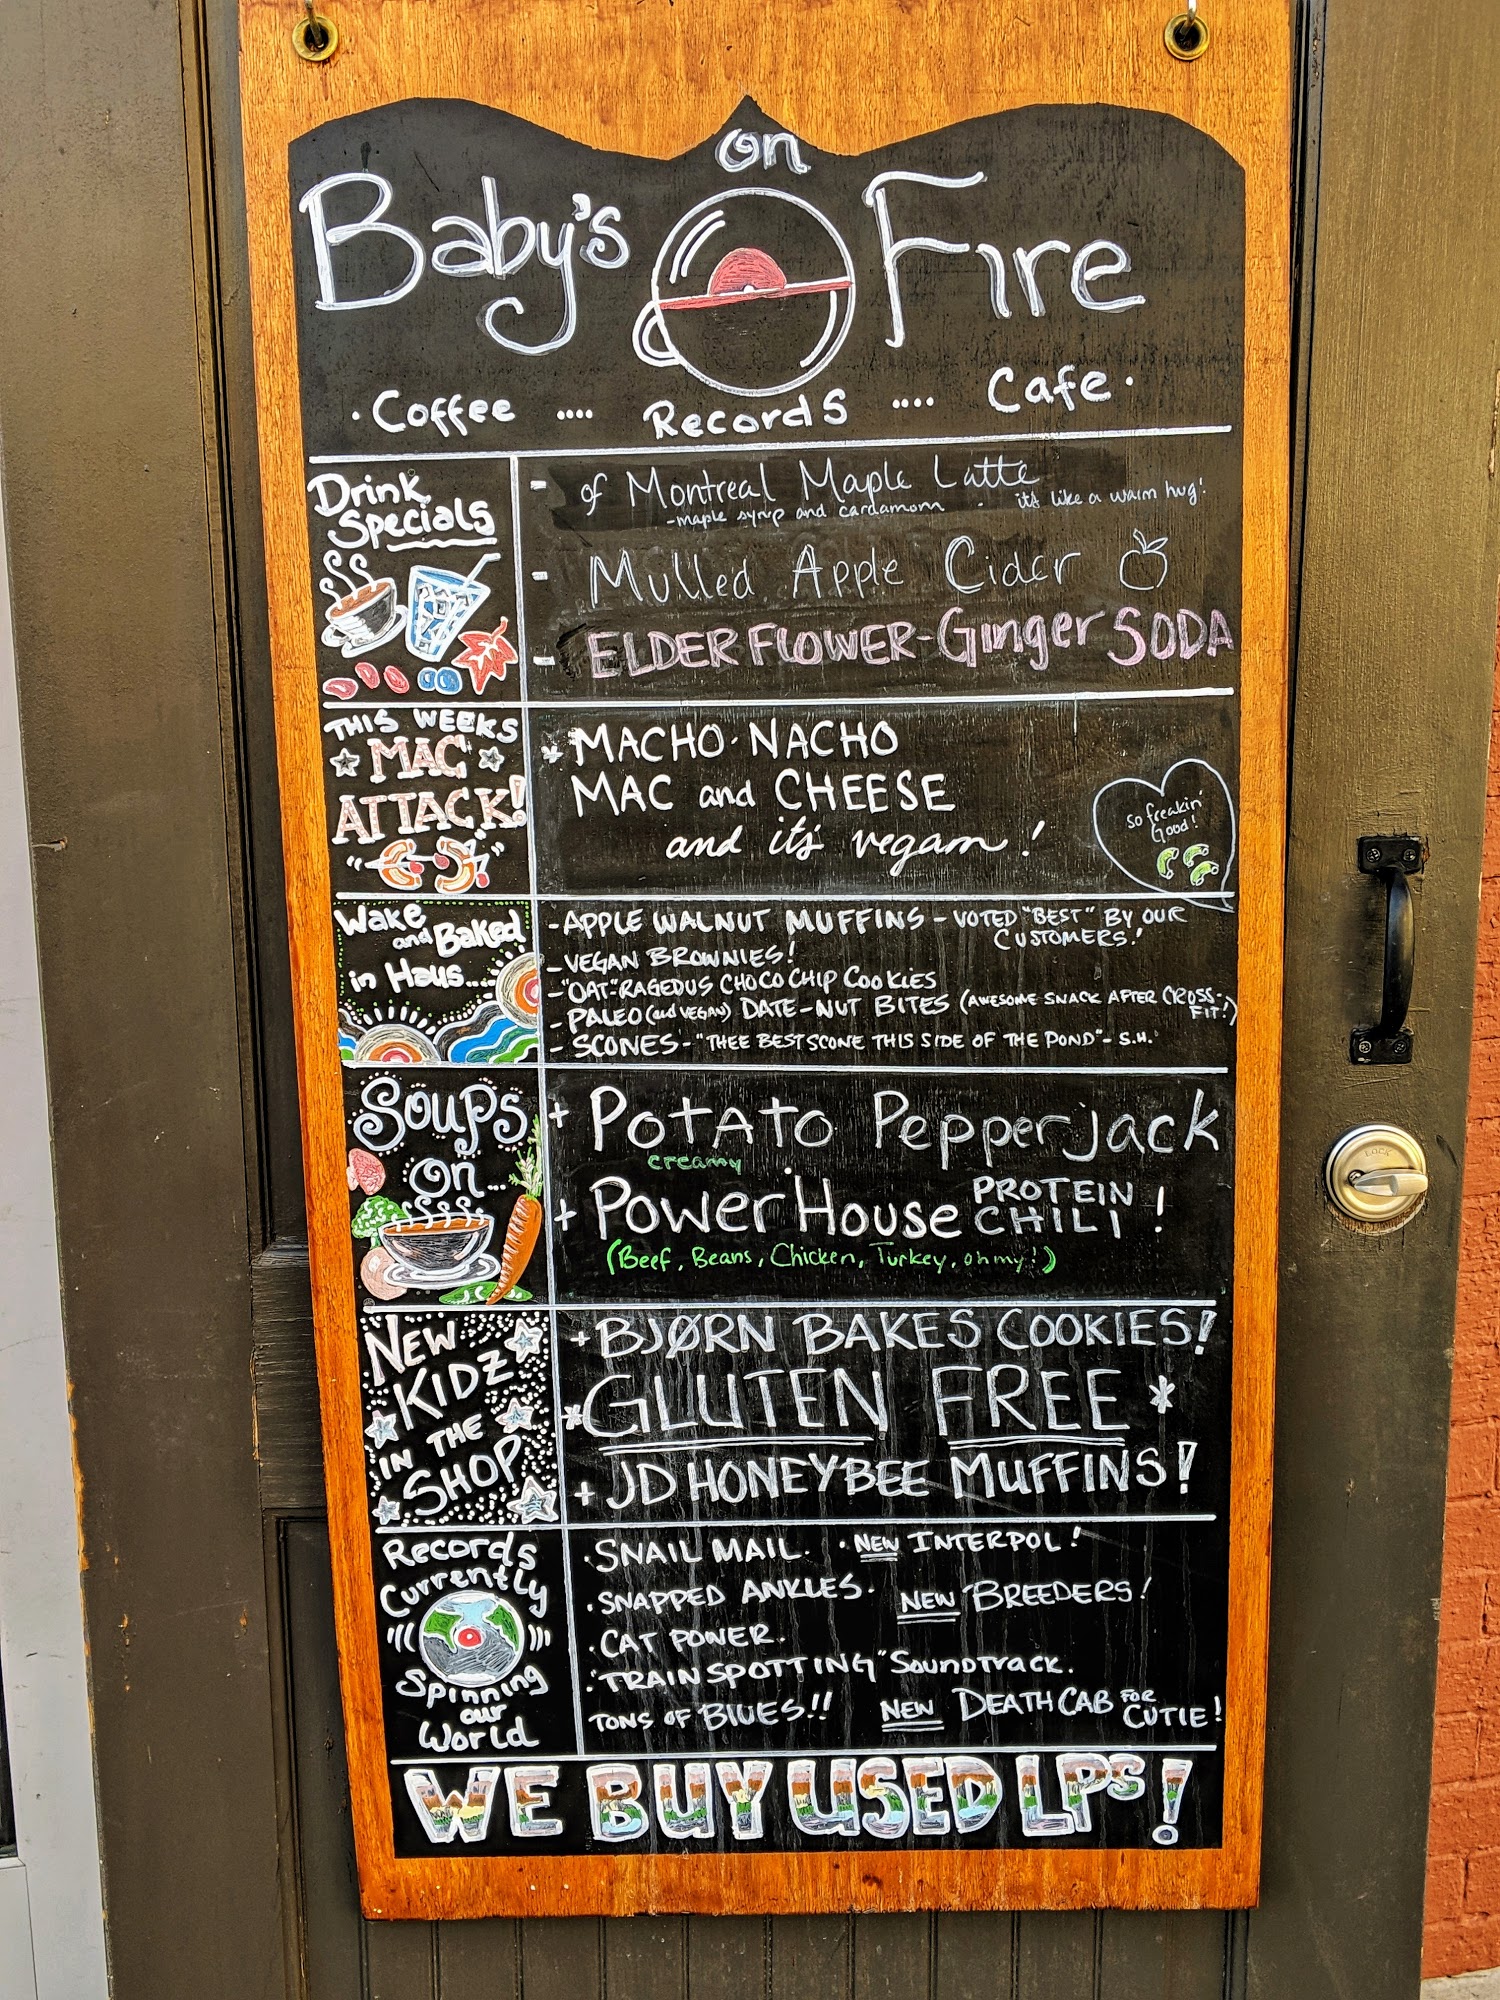 on
Baby's Fire
· Coffee .... Records .... Cafe ·
Drink
Specials
- of Montreal Maple Latte
-maple syrup and cardamom - it's like a warm hug!
- Mulled Apple Cider
- ELDERFLOWER-Ginger SODA
THIS WEEKS
MAC
ATTACK!
* MACHO·NACHO
MAC and CHEESE
and it's vegan!
So freakin'
Good!
Wake
and Baked
in Haus....
- APPLE WALNUT MUFFINS - VOTED "BEST" BY OUR
CUSTOMERS!
- VEGAN BROWNIES!
- "OAT"-RAGEOUS CHOCO CHIP COOKIES
- PALEO (and VEGAN) DATE-NUT BITES (AWESOME SNACK AFTER CROSS-
FIT!)
- SCONES - "THEE BEST SCONE THIS SIDE OF THE POND" - S.H.
Soups
on...
+ Potato Pepperjack
creamy
+ PowerHouse PROTEIN
CHILI !
(Beef, Beans, Chicken, Turkey, oh my!)
NEW
KIDZ
IN THE
SHOP
+ BJØRN BAKES COOKIES!
* GLUTEN FREE *
+ JD HONEYBEE MUFFINS!
Records
Currently
Spinning
our
World
· SNAIL MAIL. · NEW INTERPOL!
· SNAPPED ANKLES. NEW BREEDERS!
· CAT POWER.
· "TRAINSPOTTING" Soundtrack.
TONS OF BLUES!! NEW DEATH CAB FOR
CUTIE!
WE BUY USED LPs!
LOCK